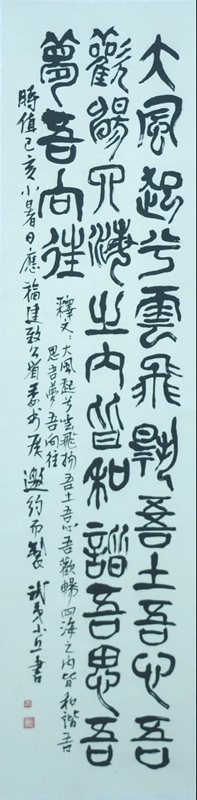 大風起兮雲飛揚吾土吾心吾
歡暢四海之内皆和諧吾思吾
夢吾向往
釋文：大風起兮雲飛揚吾土吾心吾歡暢四海之内皆和諧吾
思吾夢吾向往
時值己亥小暑日應福建致公省委邀約而製 武夷小丘書